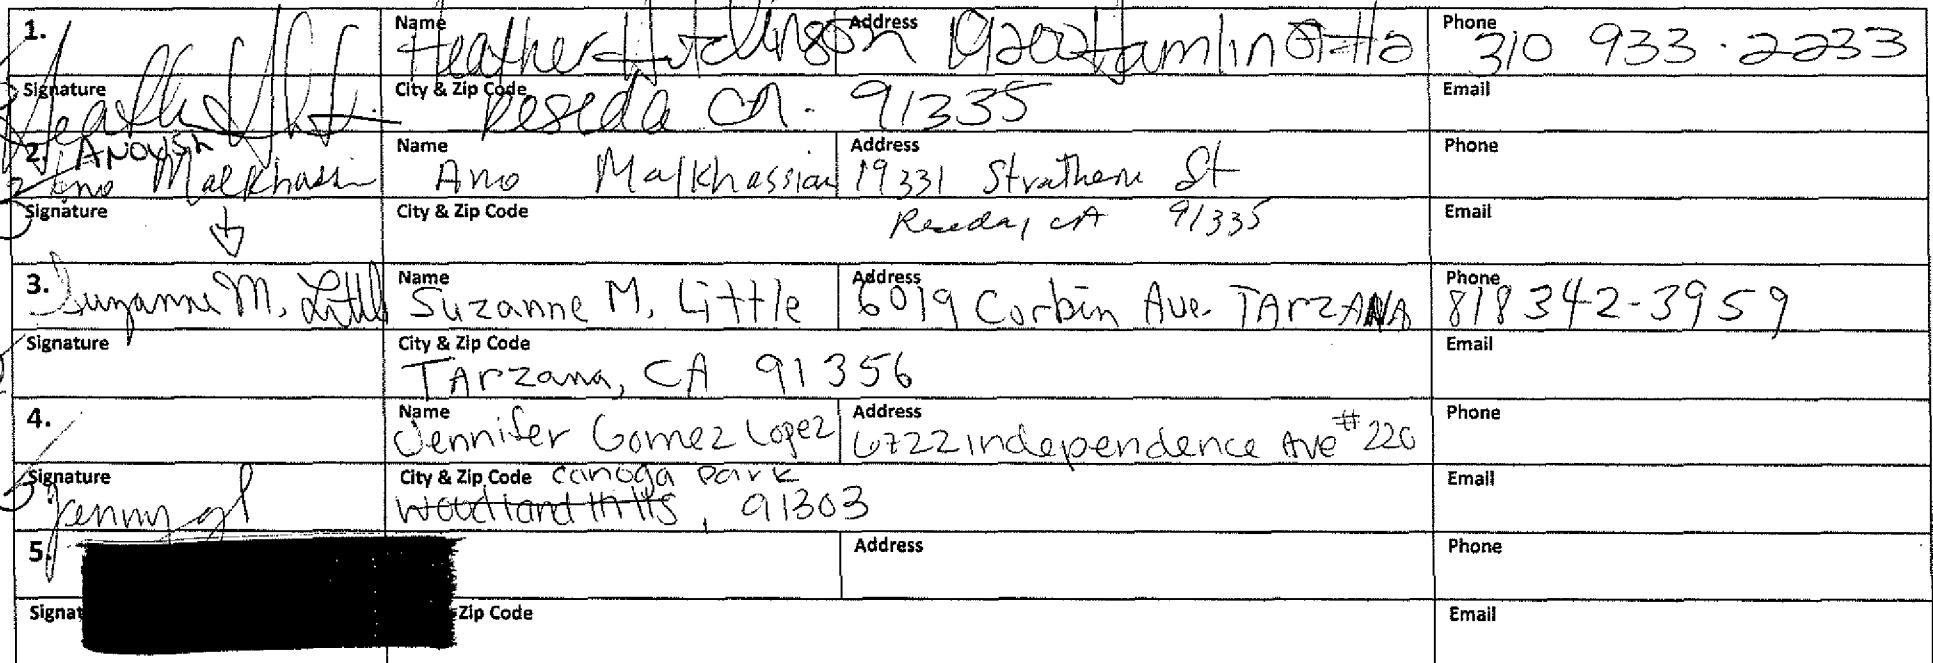 1. Name Heather Hutchinson Address 19200 Hamlin St #2 Phone 310 933.2233
Signature City & Zip Code Reseda CA. 91335 Email
2. ANOUSH Ano Malkhassi Name Ano Malkhassian Address 19331 Strathern St Phone
Signature City & Zip Code Reseda, CA 91335 Email
3. Suzanne M. Little Name Suzanne M. Little Address 6019 Corbin Ave. TARZANA Phone 818 342-3959
Signature City & Zip Code TArzana, CA 91356 Email
4. Name Jennifer Gomez Lopez Address 6722 independence Ave #220 Phone
Signature City & Zip Code canoga park Email
Jenny gl Woodland Hills, 91303
5. Address Phone
Signat Zip Code Email